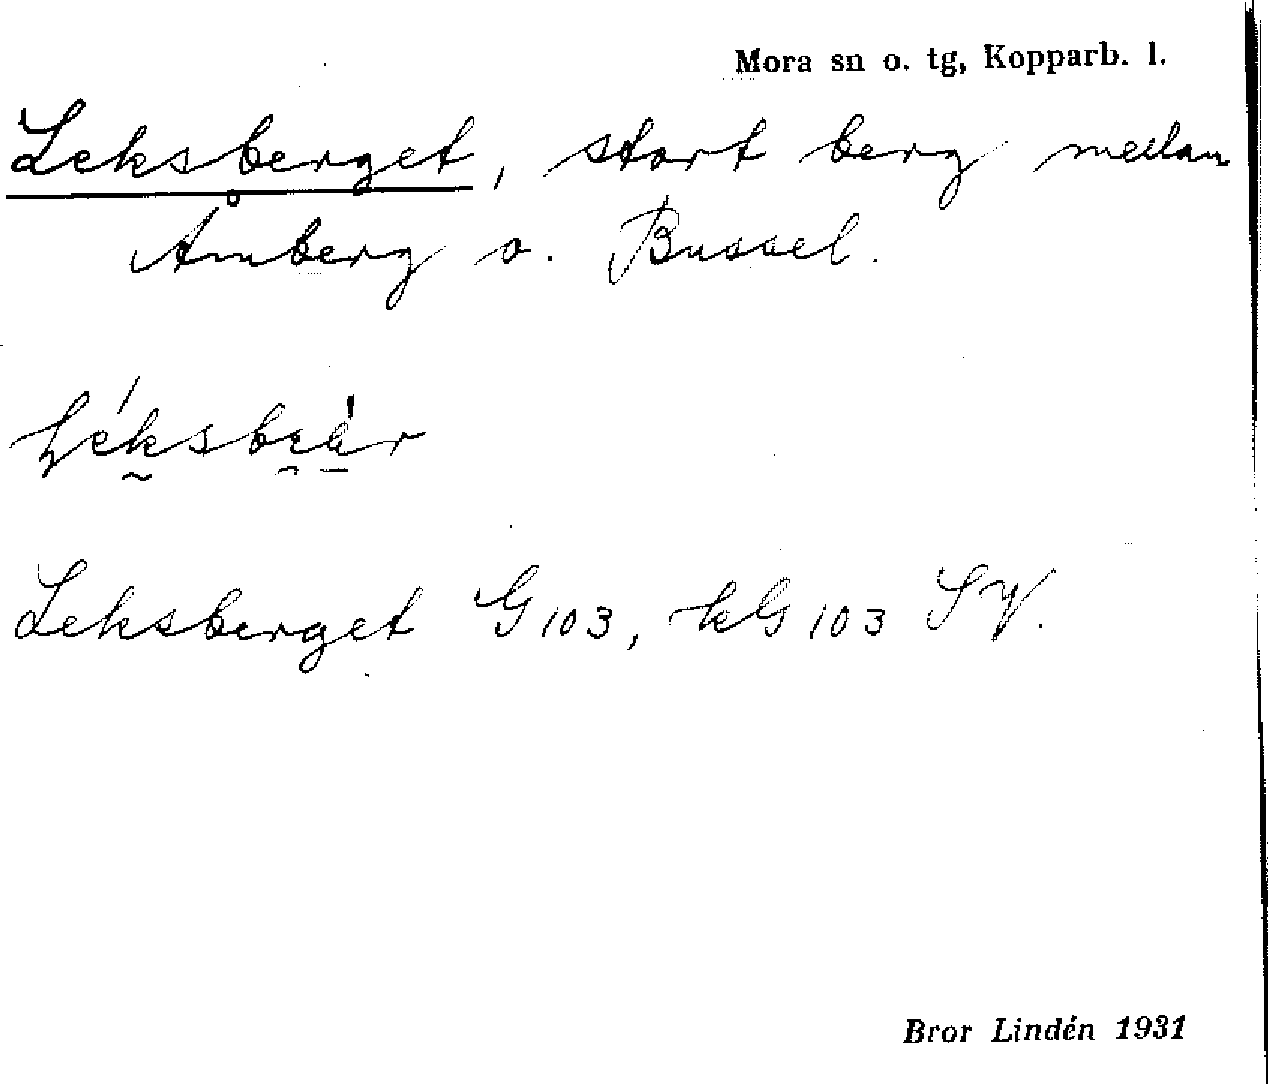 Mora sn o. tg, Kopparb. l.
Leksberget, stort berg mellan
Åmberg o. Bussel.
Leksberget G 103, kG 103 SV.
Bror Lindén 1931